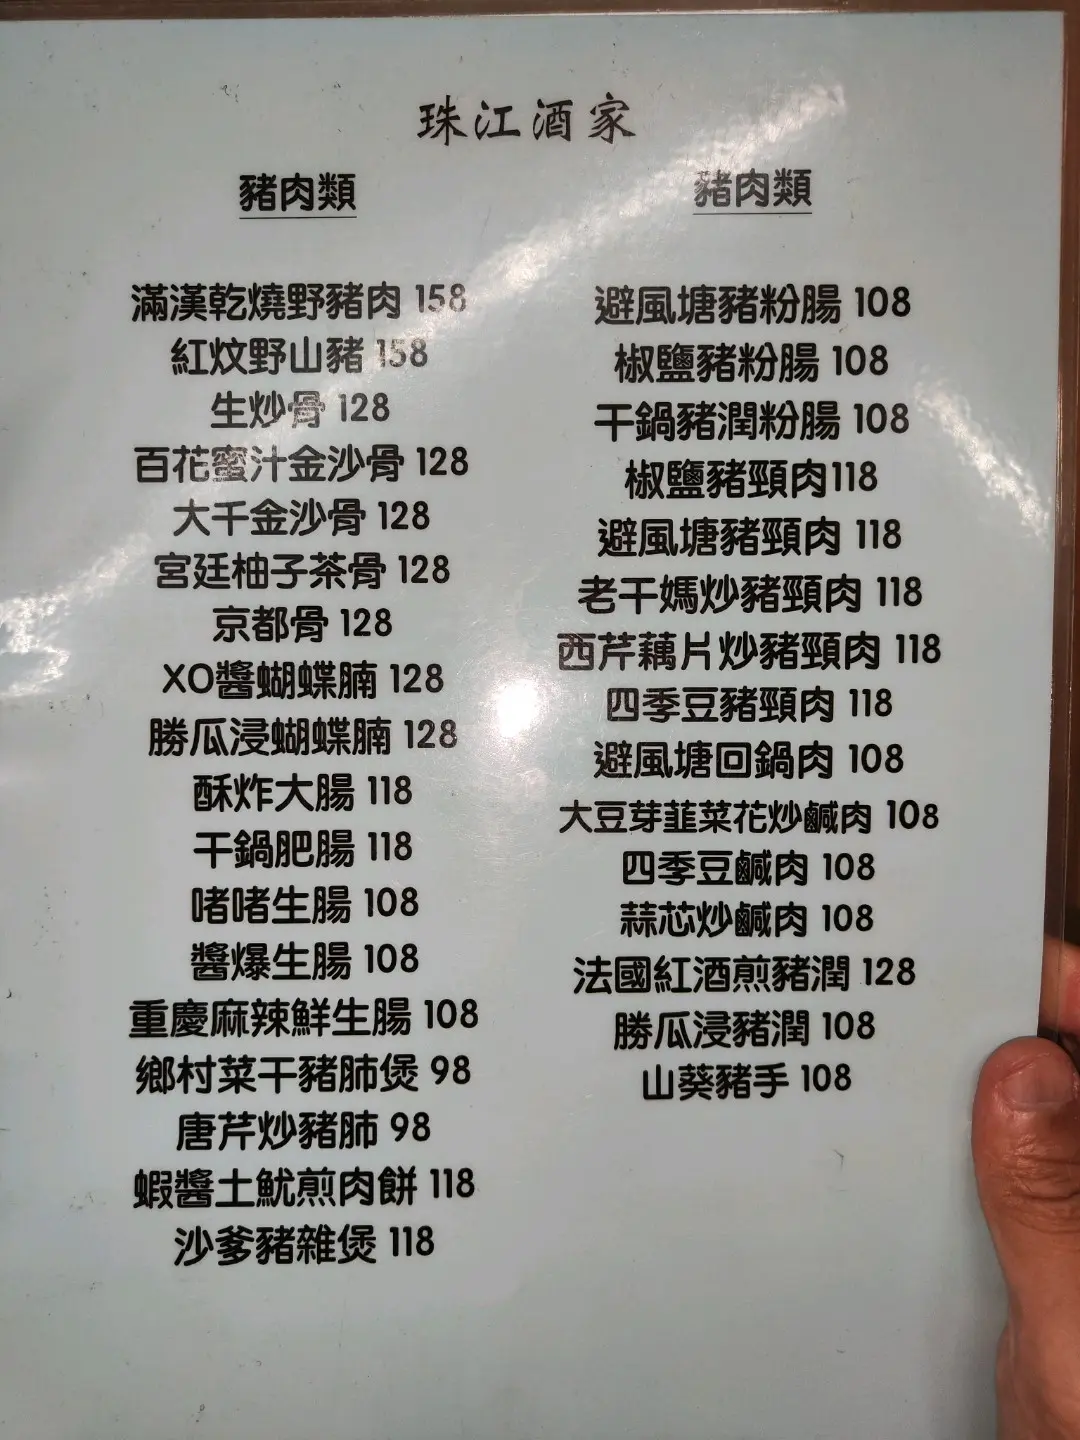 珠江酒家
豬肉類
滿漢乾燒野豬肉 158
紅炆野山豬 158
生炒骨 128
百花蜜汁金沙骨 128
大千金沙骨 128
宮廷柚子茶骨 128
京都骨 128
XO醬蝴蝶腩 128
勝瓜浸蝴蝶腩 128
酥炸大腸 118
干鍋肥腸 118
啫啫生腸 108
醬爆生腸 108
重慶麻辣鮮生腸 108
鄉村菜干豬肺煲 98
唐芹炒豬肺 98
蝦醬土魷煎肉餅 118
沙爹豬雜煲 118
豬肉類
避風塘豬粉腸 108
椒鹽豬粉腸 108
干鍋豬潤粉腸 108
椒鹽豬頸肉118
避風塘豬頸肉 118
老干媽炒豬頸肉 118
西芹藕片炒豬頸肉 118
四季豆豬頸肉 118
避風塘回鍋肉 108
大豆芽韮菜花炒鹹肉 108
四季豆鹹肉 108
蒜芯炒鹹肉 108
法國紅酒煎豬潤 128
勝瓜浸豬潤 108
山葵豬手 108